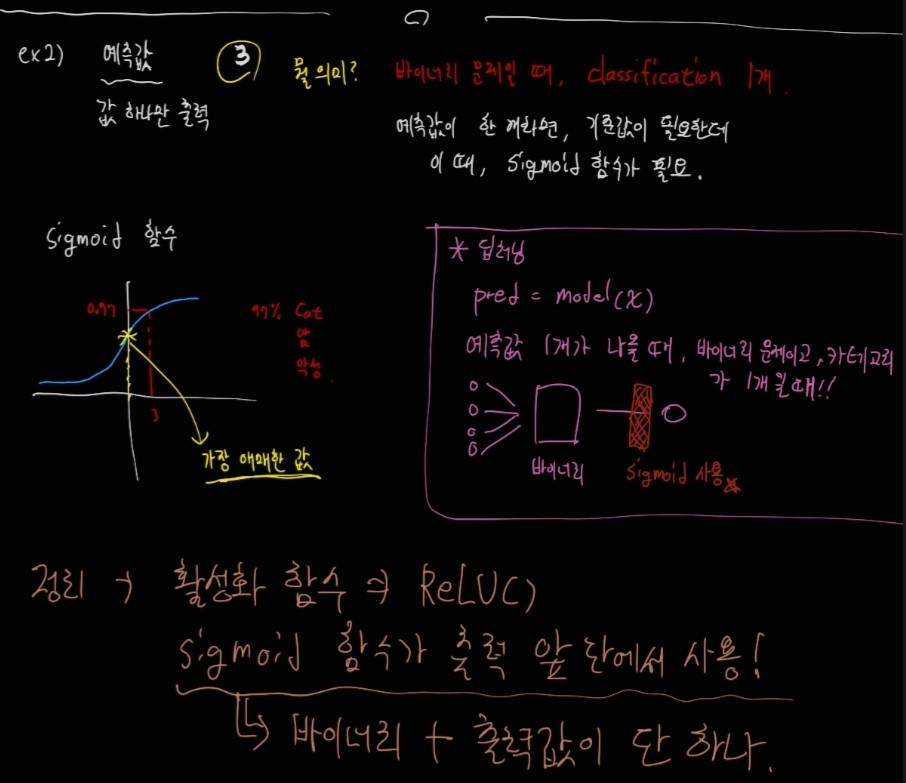 ex2) 예측값 3 뭘 의미? 바이너리 문제일 때, classification 1개.
값 하나만 출력
예측값이 한 개라면, 기준값이 필요한데
이 때, Sigmoid 함수가 필요.
Sigmoid 함수
0.97
97% Cat
암
악성.
3
가장 애매한 값
* 딥러닝
pred = model(x)
예측값 1개가 나올 때, 바이너리 문제이고, 카테고리
가 1개일 때!!
바이너리
Sigmoid 사용
정리 → 활성화 함수 ⇒ ReLU()
Sigmoid 함수가 출력 앞 단에서 사용!
↳ 바이너리 + 출력값이 단 하나.